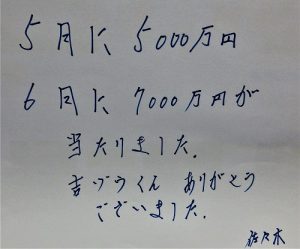 5月に5000万円
6月に7000万円が
当たりました.
吉ゾウくん ありがとう
ございました.
佐々木